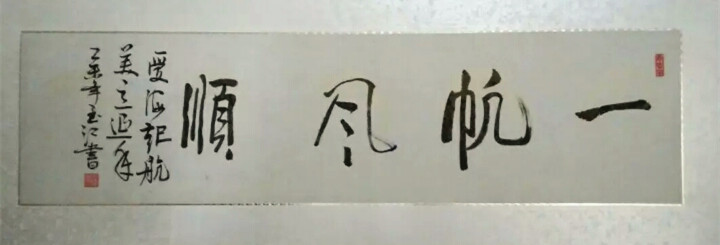 一帆风順
愛海起航
美之延年
乙未年玉江書